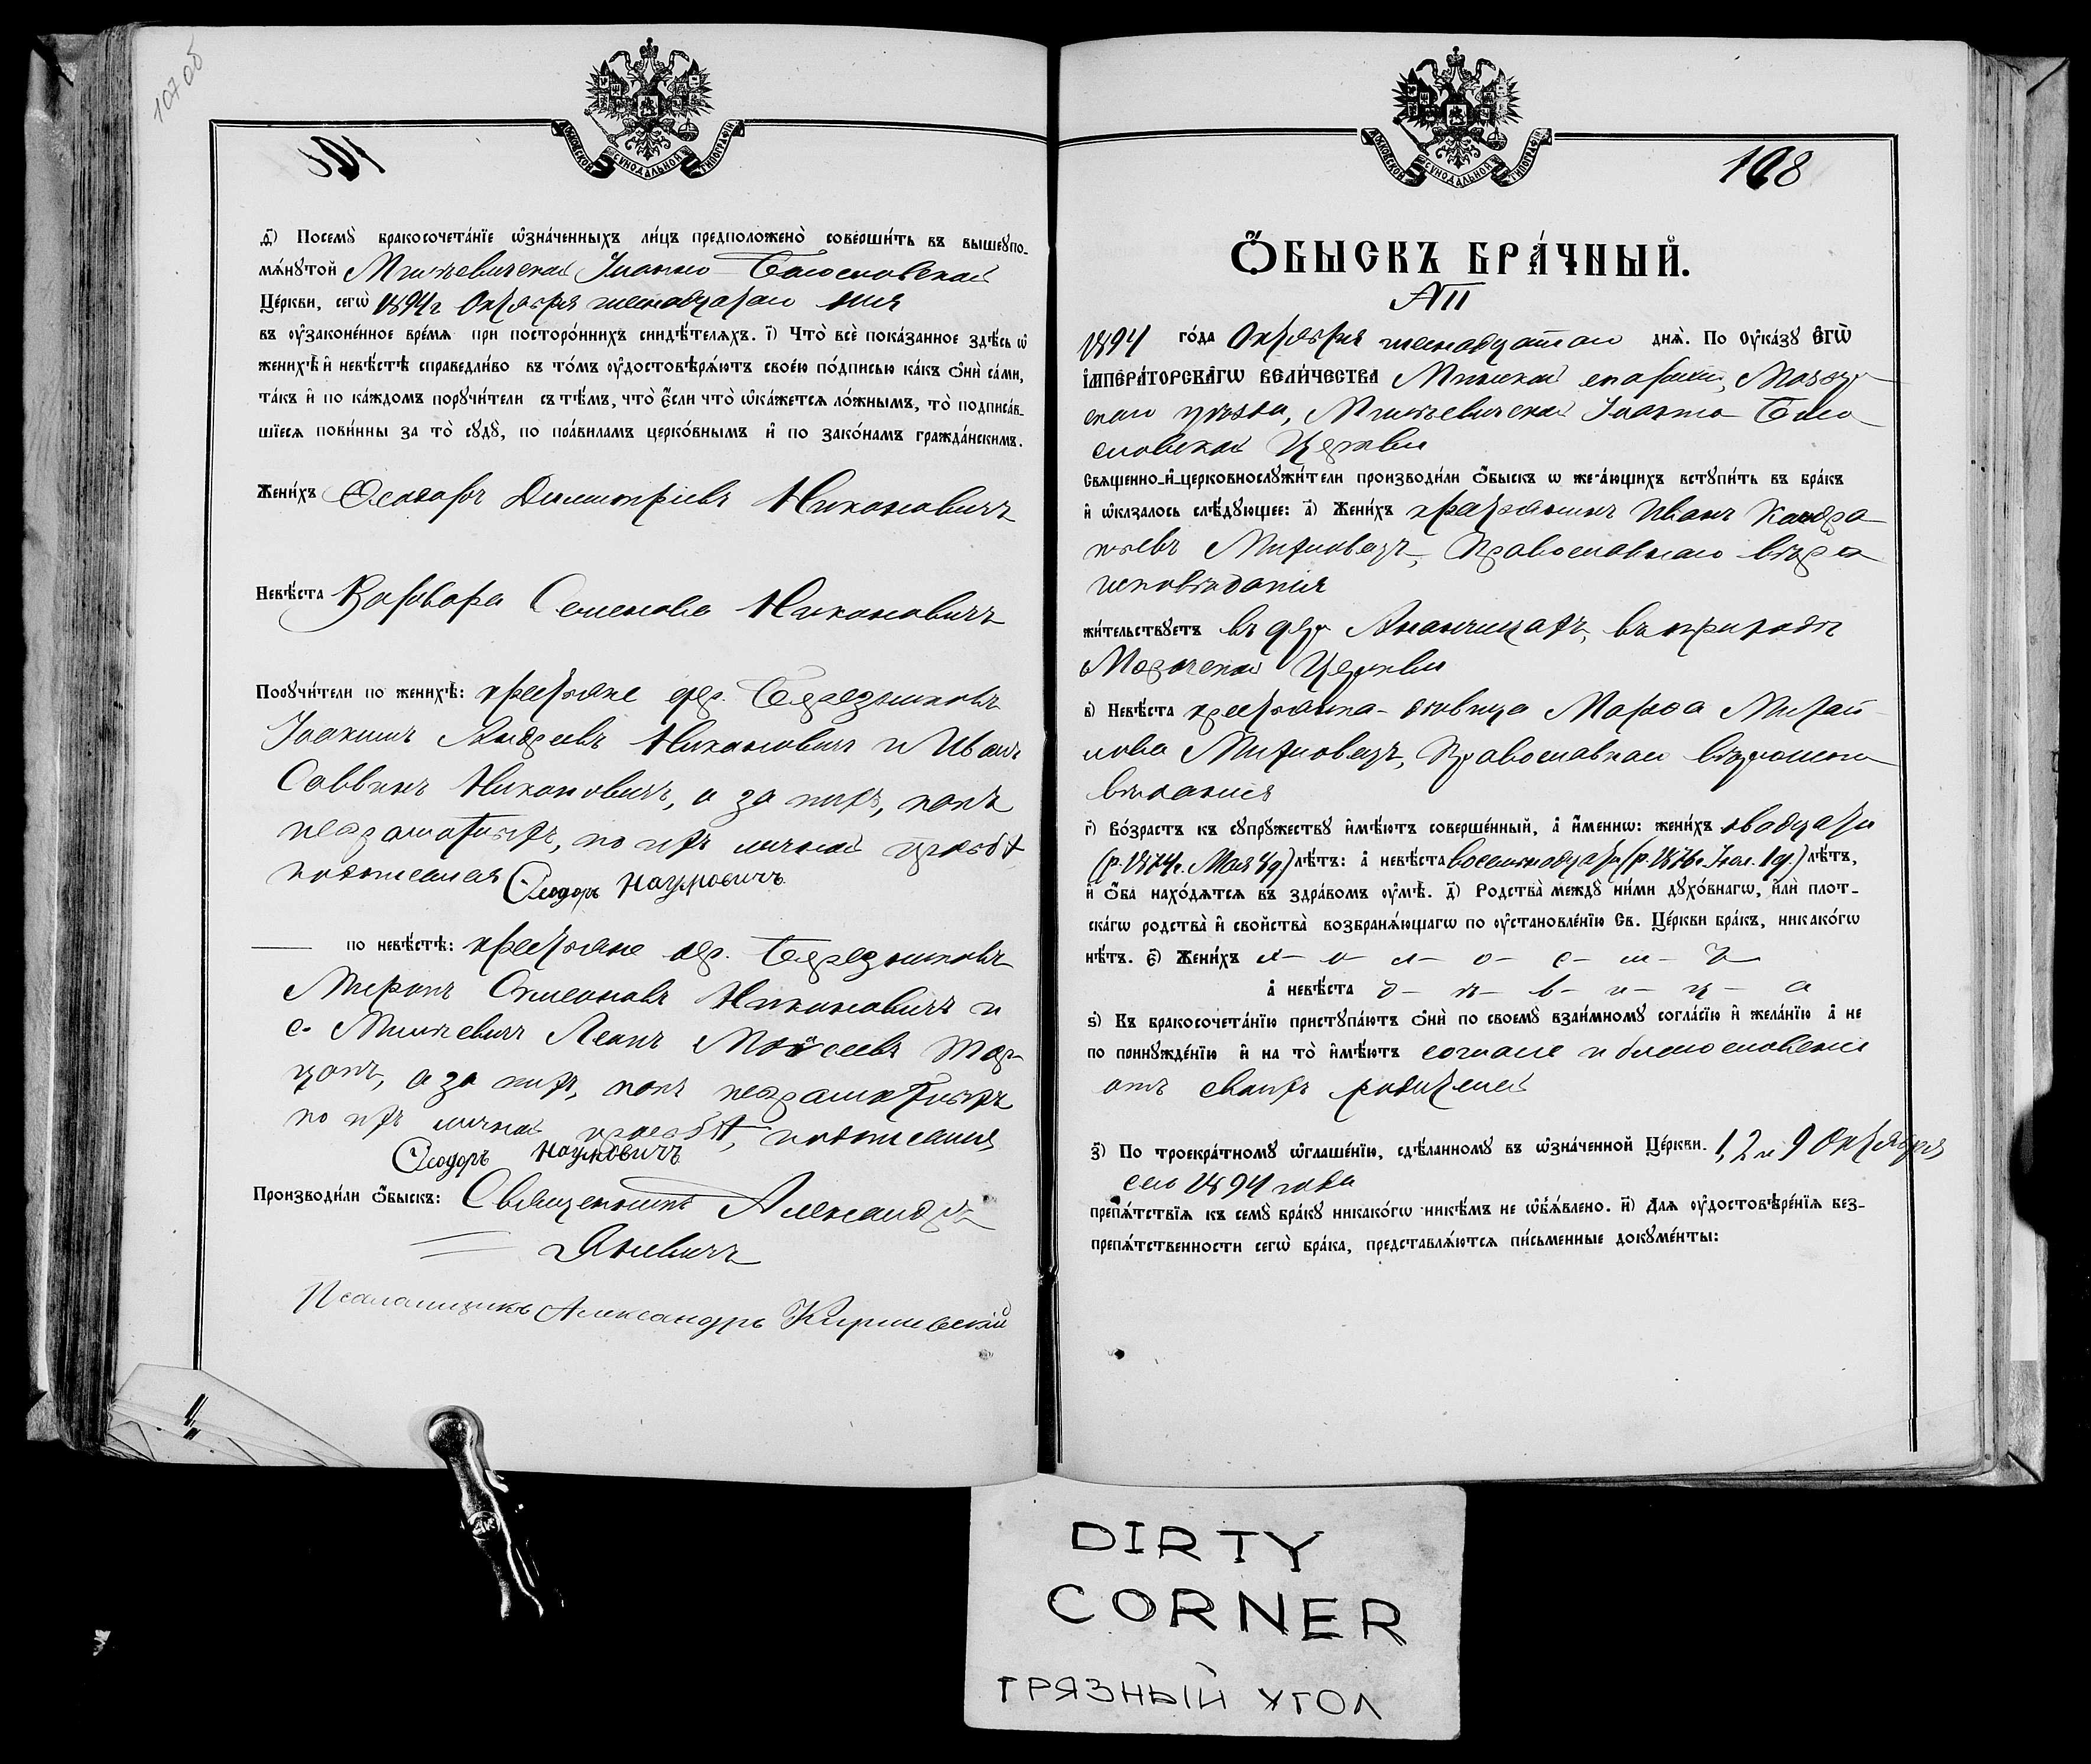 МОСКОВСКОЙ СѴНОДАЛЬНОЙ ТИПОГРАФІИ
д҃) Посемꙋ̀ бракосочета́нїе ѡ҆зна́ченныхъ ли́цъ предположено̀ соверши́ть въ вышеꙋпо-
мѧ́нꙋтой Іоанно-Богословской
Це́ркви, сегѡ̀ 1894 г. Октября дня
въ ᲂу҆законе́нное вре́мѧ при посторо́ннихъ свидѣ́телѧхъ. і҃) Что̀ всѐ пока́занное здѣ́сь ѡ҆
женихѣ̀ и҆ невѣ́стѣ справедли́во въ то́мъ ᲂу҆достовѣрѧ́ютъ свое́ю по́дписью ка́къ ѻ҆нѝ са́ми,
та́къ и҆ по ка́ждомъ порꙋчи́тели съ тѣ́мъ, что̀ є҆́сли что̀ ѡ҆ка́жетсѧ ло́жнымъ, то̀ подписа́в-
шїесѧ пови́нны за то̀ сꙋдꙋ̀, по пра́виламъ церко́внымъ и҆ по зако́намъ гражда́нскимъ.
Жени́хъ Ѳеодоръ Димитріевъ Никоновичъ
Невѣ́ста Варвара Семенова Никоновичъ
Порꙋчи́тели по женихѣ̀: крестьяне дер. Березняковъ
Іоакимъ Андреевъ Никоновичъ и Иванъ
Саввинъ Никоновичъ, а за нихъ, какъ
неграмотныхъ, по ихъ личной просьбѣ
подписался Ѳеодоръ Наумовичъ
по невѣ́стѣ: крестьяне дер. Березняковъ
Миронъ Симеоновъ Никоновичъ и
с. Леонъ Моѵсеевъ
а за нихъ, какъ неграмотныхъ
по ихъ личной просьбѣ, подписался
Ѳеодоръ Наумовичъ
Производи́ли ѻ҆́быскъ: Священникъ Александръ
Псаломщикъ Александръ
МОСКОВСКОЙ СѴНОДАЛЬНОЙ ТИПОГРАФІИ
108
Ѻ҆́БЫСКЪ БРА́ЧНЫЙ.
№11
1894 го́да Октября днѧ̀. По ᲂу҆ка́зꙋ Е҆гѡ̀
І҆МПЕРА́ТОРСКАГѠ ВЕЛИ́ЧЕСТВА Минской епархіи, Мозыр-
скаго уѣзда, Іоанно-Бого-
словской Церкви
Свѧщенно-и҆-церковнослꙋжи́тели производи́ли ѻ҆́быскъ ѡ҆ жела́ющихъ встꙋпи́ть въ бра́къ
и҆ ѡ҆каза́лось слѣ́дꙋющее: а҃) Жени́хъ крестьянинъ Иванъ Кондра-
тьевъ Михновецъ, Православнаго вѣро
исповѣданія
жи́тельствꙋетъ въ дер. Ананчицахъ, въ приходѣ
Церкви
в҃) Невѣ́ста крестьянка-дѣвица Марѳа Михай-
лова Михновецъ, Православнаго вѣроиспо-
вѣданія
г҃) Во́зрастъ къ сꙋпрꙋ́жествꙋ и҆мѣ́ютъ соверше́нный, а҆ и҆́меннѡ: жени́хъ двадцати
(р. 1874 г. Мая 8 д.) лѣ́тъ: а҆ невѣ́ста восемнадцати (р. 1876 г. 1 д.) лѣ́тъ,
и҆ ѻ҆́ба нахо́дѧтсѧ въ здра́вомъ ᲂу҆мѣ̀. д҃) Родства̀ междꙋ̀ ни́ми дꙋхо́внагѡ, и҆лѝ плот-
ска́гѡ родства̀ и҆ свойства̀ возбранѧ́ющагѡ по ᲂу҆становле́нїю Св. Це́ркви бра́къ, никако́гѡ
нѣ́тъ. є҃) Жени́хъ х- о- л- о- с- т- ъ
а҆ невѣ́ста д- ѣ- в- и- ц- а
ѕ҃) Къ бракосочета́нїю пристꙋпа́ютъ ѻ҆нѝ по своемꙋ̀ взаи́мномꙋ согла́сїю и҆ жела́нїю а҆ не
по принꙋжде́нїю и҆ на то̀ и҆мѣ́ютъ согласіе и благословеніе
отъ своихъ родителей
з҃) По троекра́тномꙋ ѡ҆глаше́нїю, сдѣ́ланномꙋ въ ѡ҆зна́ченной Це́ркви. 1, 2 и 9 Октября
сего 1894 года
препѧ́тствїѧ къ семꙋ̀ бра́кꙋ никако́гѡ никѣ́мъ не ѡ҆б̾ѧ́влено. и҃) Длѧ ᲂу҆достовѣре́нїѧ без-
препѧ́тственности сегѡ̀ бра́ка, представлѧ́ютсѧ пи́сьменные докꙋме́нты:
DIRTY
CORNER
ГРЯЗНЫЙ УГОЛ